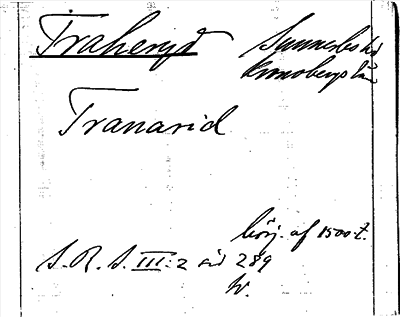 Traheryd
Sunnerbo hd
Kronobergs län
Tranarid
börj. af 1500-t.
S. R. S. III:2 sid 289
W.